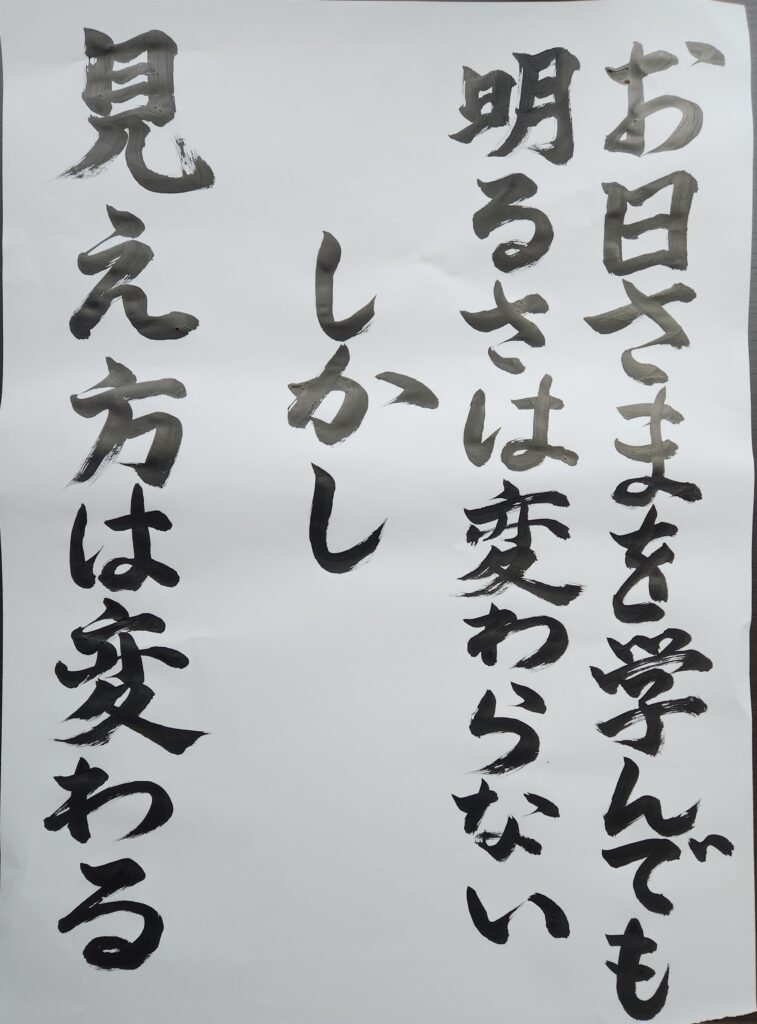 お日さまを学んでも
明るさは変わらない
しかし
見え方は変わる